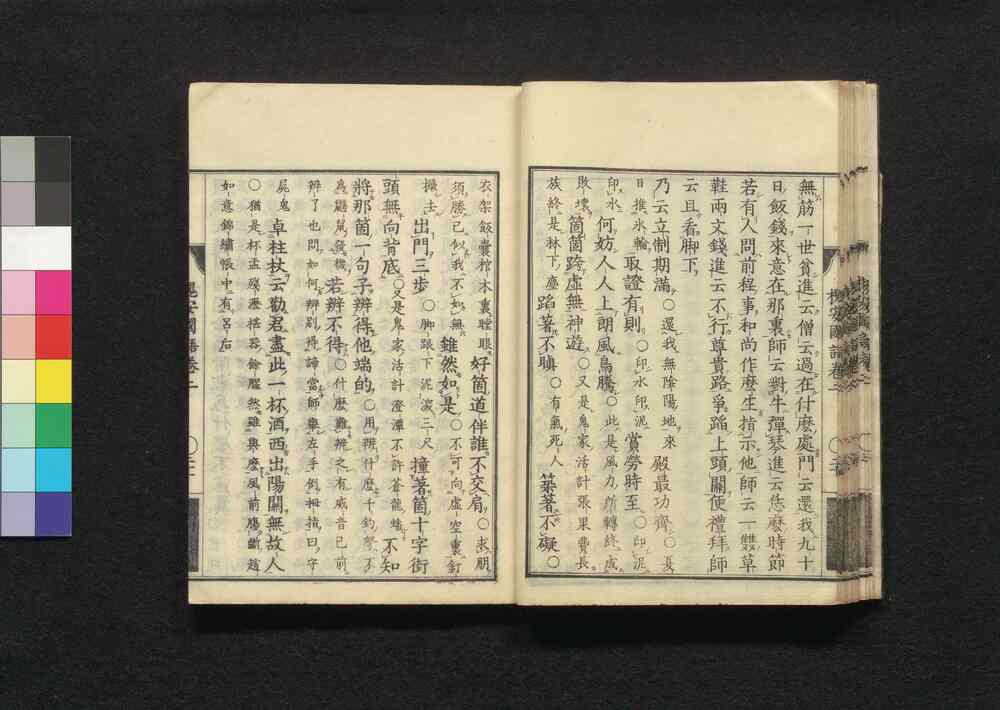 無筋一世貧進云僧云過在什麽處門云還我九十
日飯錢來意在那裏師云對牛彈琴進云恁麽時節
若有人問前程事和尚作麽生指示他師云一雙草
鞋兩文錢進云不行尊貴路爭蹈上頭關便禮拜師
云且看脚下
乃云立制期滿〇還我無陰陽地來 殿最功齊〇
日推氷輪 取證有則〇印水印泥 賞勞時至〇印泥
印水 何妨人人上朗風鳥騰〇此是風力所轉終成
敗壞 箇箇跨虛無神遊〇又是鬼家活計張果費長
族終是林下塵 蹈著不瞋〇有氣死人 築著不礙〇
衣架飯囊棺木裏瞠眼 好箇道伴誰不交肩〇求朋
須勝己似我不如無 雖然如是〇不可向虛空裏釘
橛去 出門三步〇脚跟下泥深三尺 撞著箇十字街
頭無向背底〇又是鬼家活計澄潭不許蒼龍蟠 不知
將那箇一句子辨得他端的〇用辨什麽千鈞弩不
爲鼷鼠發機 若辨不得〇什麽難辨之有威音已前
辨了也問如何辨別得諦當師擧左手倒拇指曰守
屍鬼 卓柱杖云勸君盡此一杯酒西出陽關無故人
〇猶是杯盂殘瀝樒器餘臊然雖與麽風前慶斷趙
如意錦繡帳中有呂后
槐安國語卷二